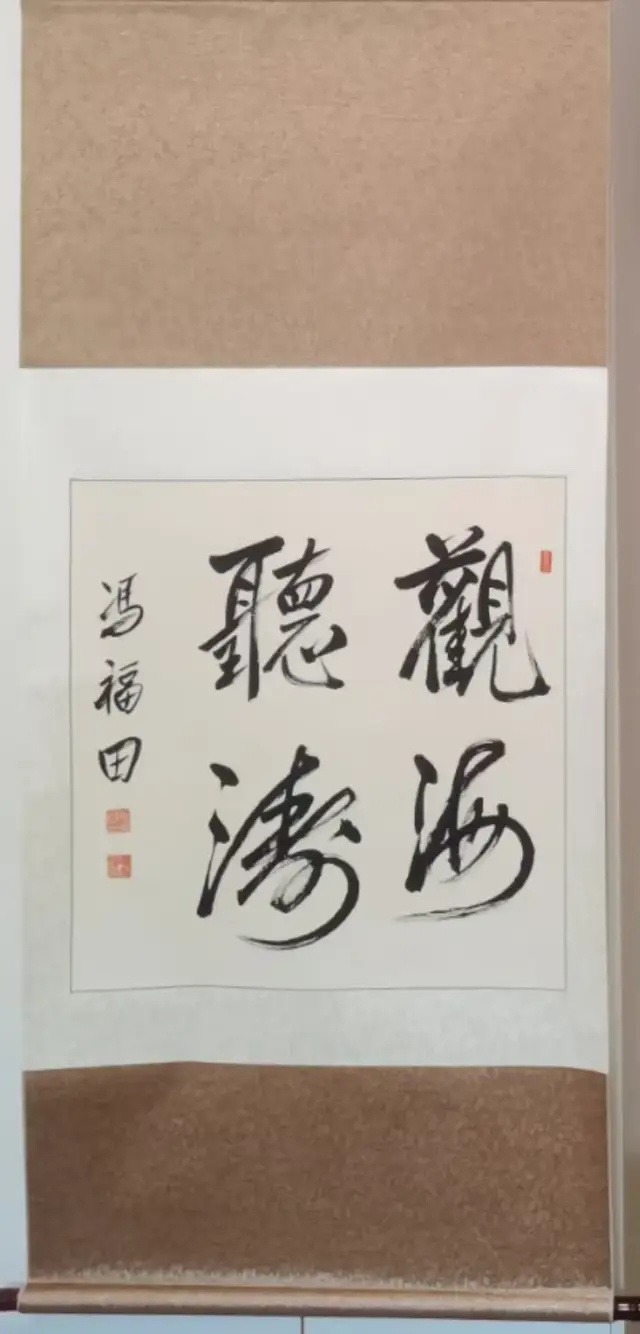 觀海
聽濤
馮福田